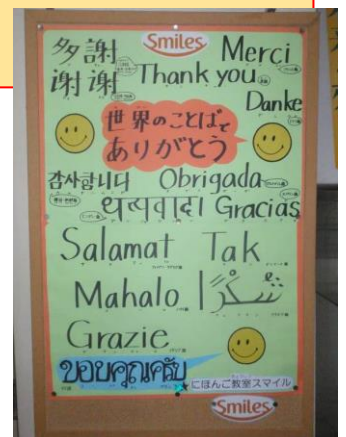 Smiles
多謝 Merci
谢谢 Thank you
Danke
世界のことばで
ありがとう
감사합니다 Obrigada
धन्यवाद। Gracias
Salamat Tak
Mahalo شكراً
Grazie
ขอบคุณครับ
にほんご教室スマイル
Smiles